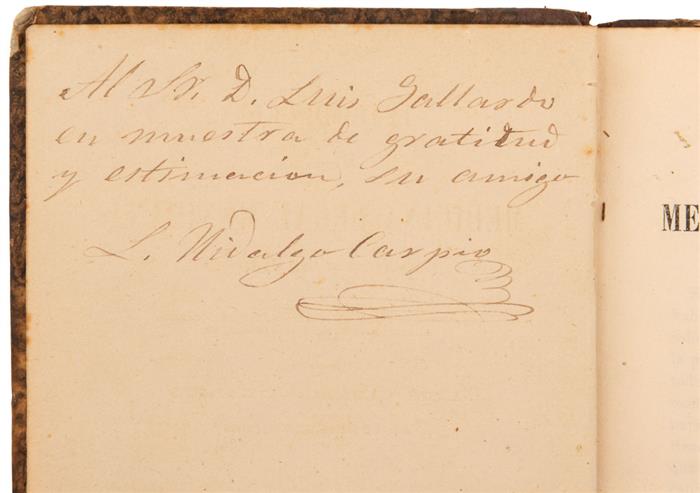 Al Sr. D. Luis Gallardo
en muestra de gratitud
y estimacion, su amigo
L. Hidalgo Carpio
ME